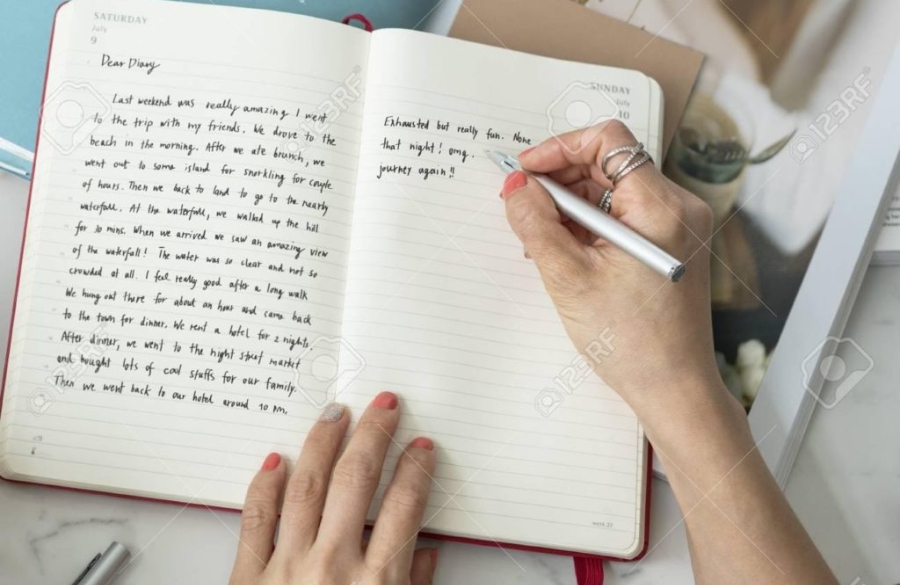 SATURDAY
July
9
Dear Diary
Last weekend was really amazing I went
to the trip with my friends. We drove to the
beach in the morning. After we ate brunch, we
went out to some island for snorkling for couple
of hours. Then we back to land to go to the nearby
waterfall. At the waterfall, we walked up the hill
for 30 mins. When we arrived we saw an amazing view
of the waterfall! The water was so clear and not so
crowded at all. I feel really good after a long walk
We hung out there for about an hour and came back
to the town for dinner. We rent a hotel for 2 nights.
After dinner, we went to the night street market
and bought lots of cool stuffs for our family.
Then we went back to our hotel around 10 pm.
SUNDAY
July
10
Exhausted but really fun. None
that night! omg.
journey again!!
123RF
123RF
123RF
123RF
123RF